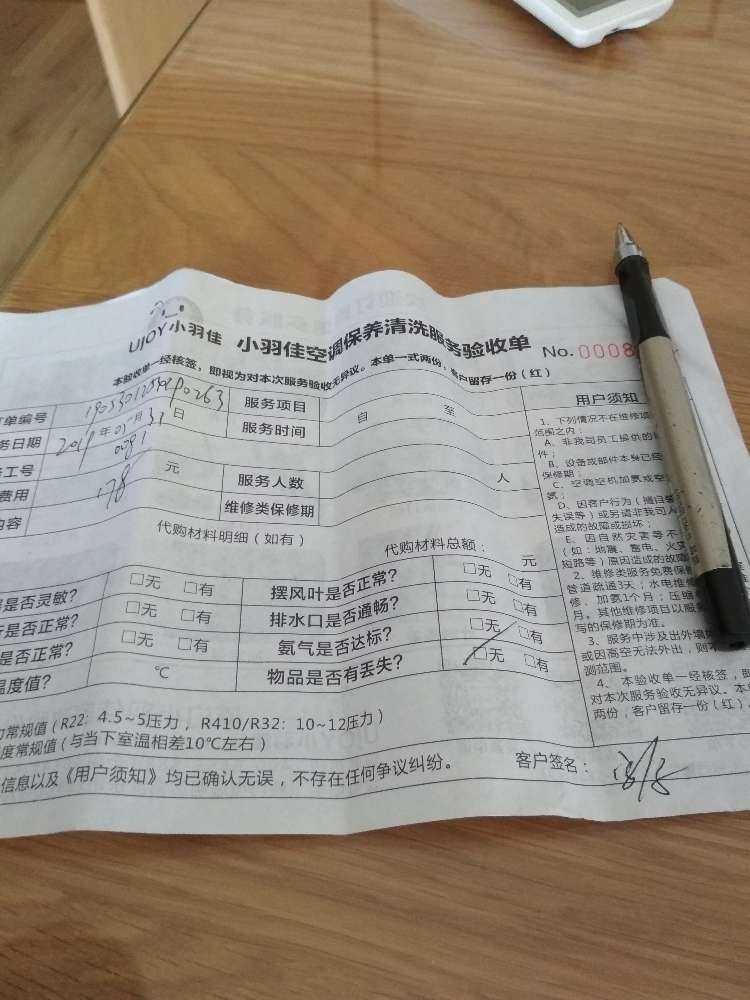 UJOY小羽佳 小羽佳空调保养清洗服务验收单 No.0008
本验收单一经核签，即视为对本次服务验收无异议。本单一式两份，客户留存一份（红）
单编号 服务项目
务日期 2019年 月31日 服务时间 自 至
工号 0081
费用 178 元 服务人数 人
内容 维修类保修期
代购材料明细（如有） 代购材料总额： 元
是否灵敏？ □无 □有 摆风叶是否正常？ □无 □有
是否正常？ □无 □有 排水口是否通畅？ □无 □有
是否正常？ □无 □有 氨气是否达标？ □无 □有
温度值？ ℃ 物品是否有丢失？ □无 □有
力常规值（R22：4.5~5压力，R410/R32：10~12压力）
度常规值（与当下室温相差10℃左右）
信息以及《用户须知》均已确认无误，不存在任何争议纠纷。 客户签名：
用户须知
1、下列情况不在维修项
范围之内：
A、非我司员工提供的
件；
B、设备或部件本身已
保修期；
C、空调空机加氨或空
氨；
D、因客户行为（擅自
失误等）或另请非我司人
造成的故障或损坏；
E、因自然灾害等不
（如：地震、雷电、火灾
短路等）原因造成的故障
2、维修类服务免费保
管道疏通3天；水电维修
修、加氨1个月；压缩
月。其他维修项目以服务
写的保修期为准。
3、服务中涉及出外墙
或因高空无法外出，则不
测范围。
4、本验收单一经核签，即
对本次服务验收无异议。本单
两份，客户留存一份（红）。